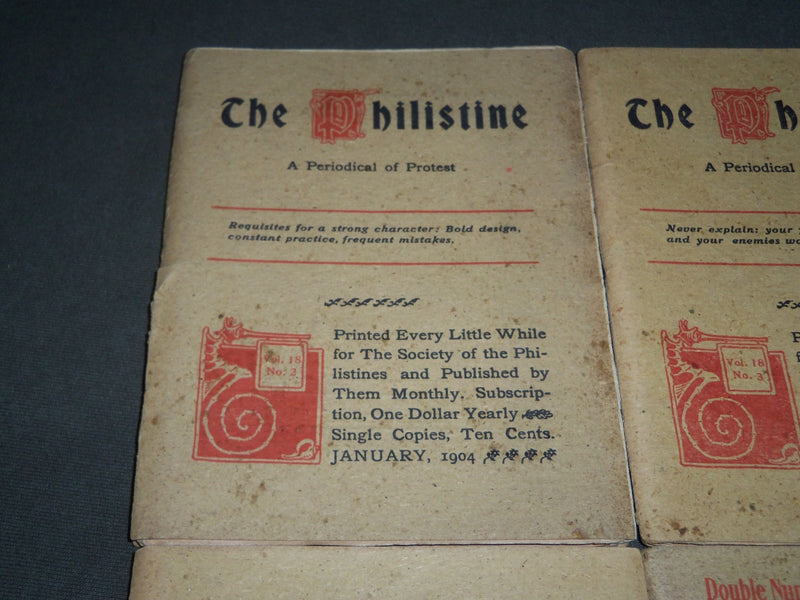 The Philistine
A Periodical of Protest
Requisites for a strong character: Bold design,
constant practice, frequent mistakes.
Vol. 18
No. 2
Printed Every Little While
for The Society of the Phi-
listines and Published by
Them Monthly. Subscrip-
tion, One Dollar Yearly
Single Copies, Ten Cents.
JANUARY, 1904
The Ph
A Periodical
Never explain: your
and your enemies
Vol. 18
No. 3
Double